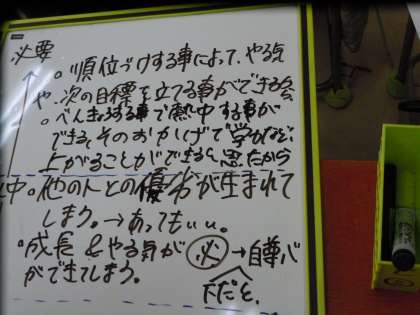 必要
。順位づけする事によって、やる気
や、次の目標を立てる事ができる会
。べんきょうする事で熱中する事が
できる、そのおかげで学力など、
上がることができると思たから
中。他の人との優劣が生まれて
しまう。→あってもいい。
。成長&やる気が 必 →自尊心
ができてしまう。